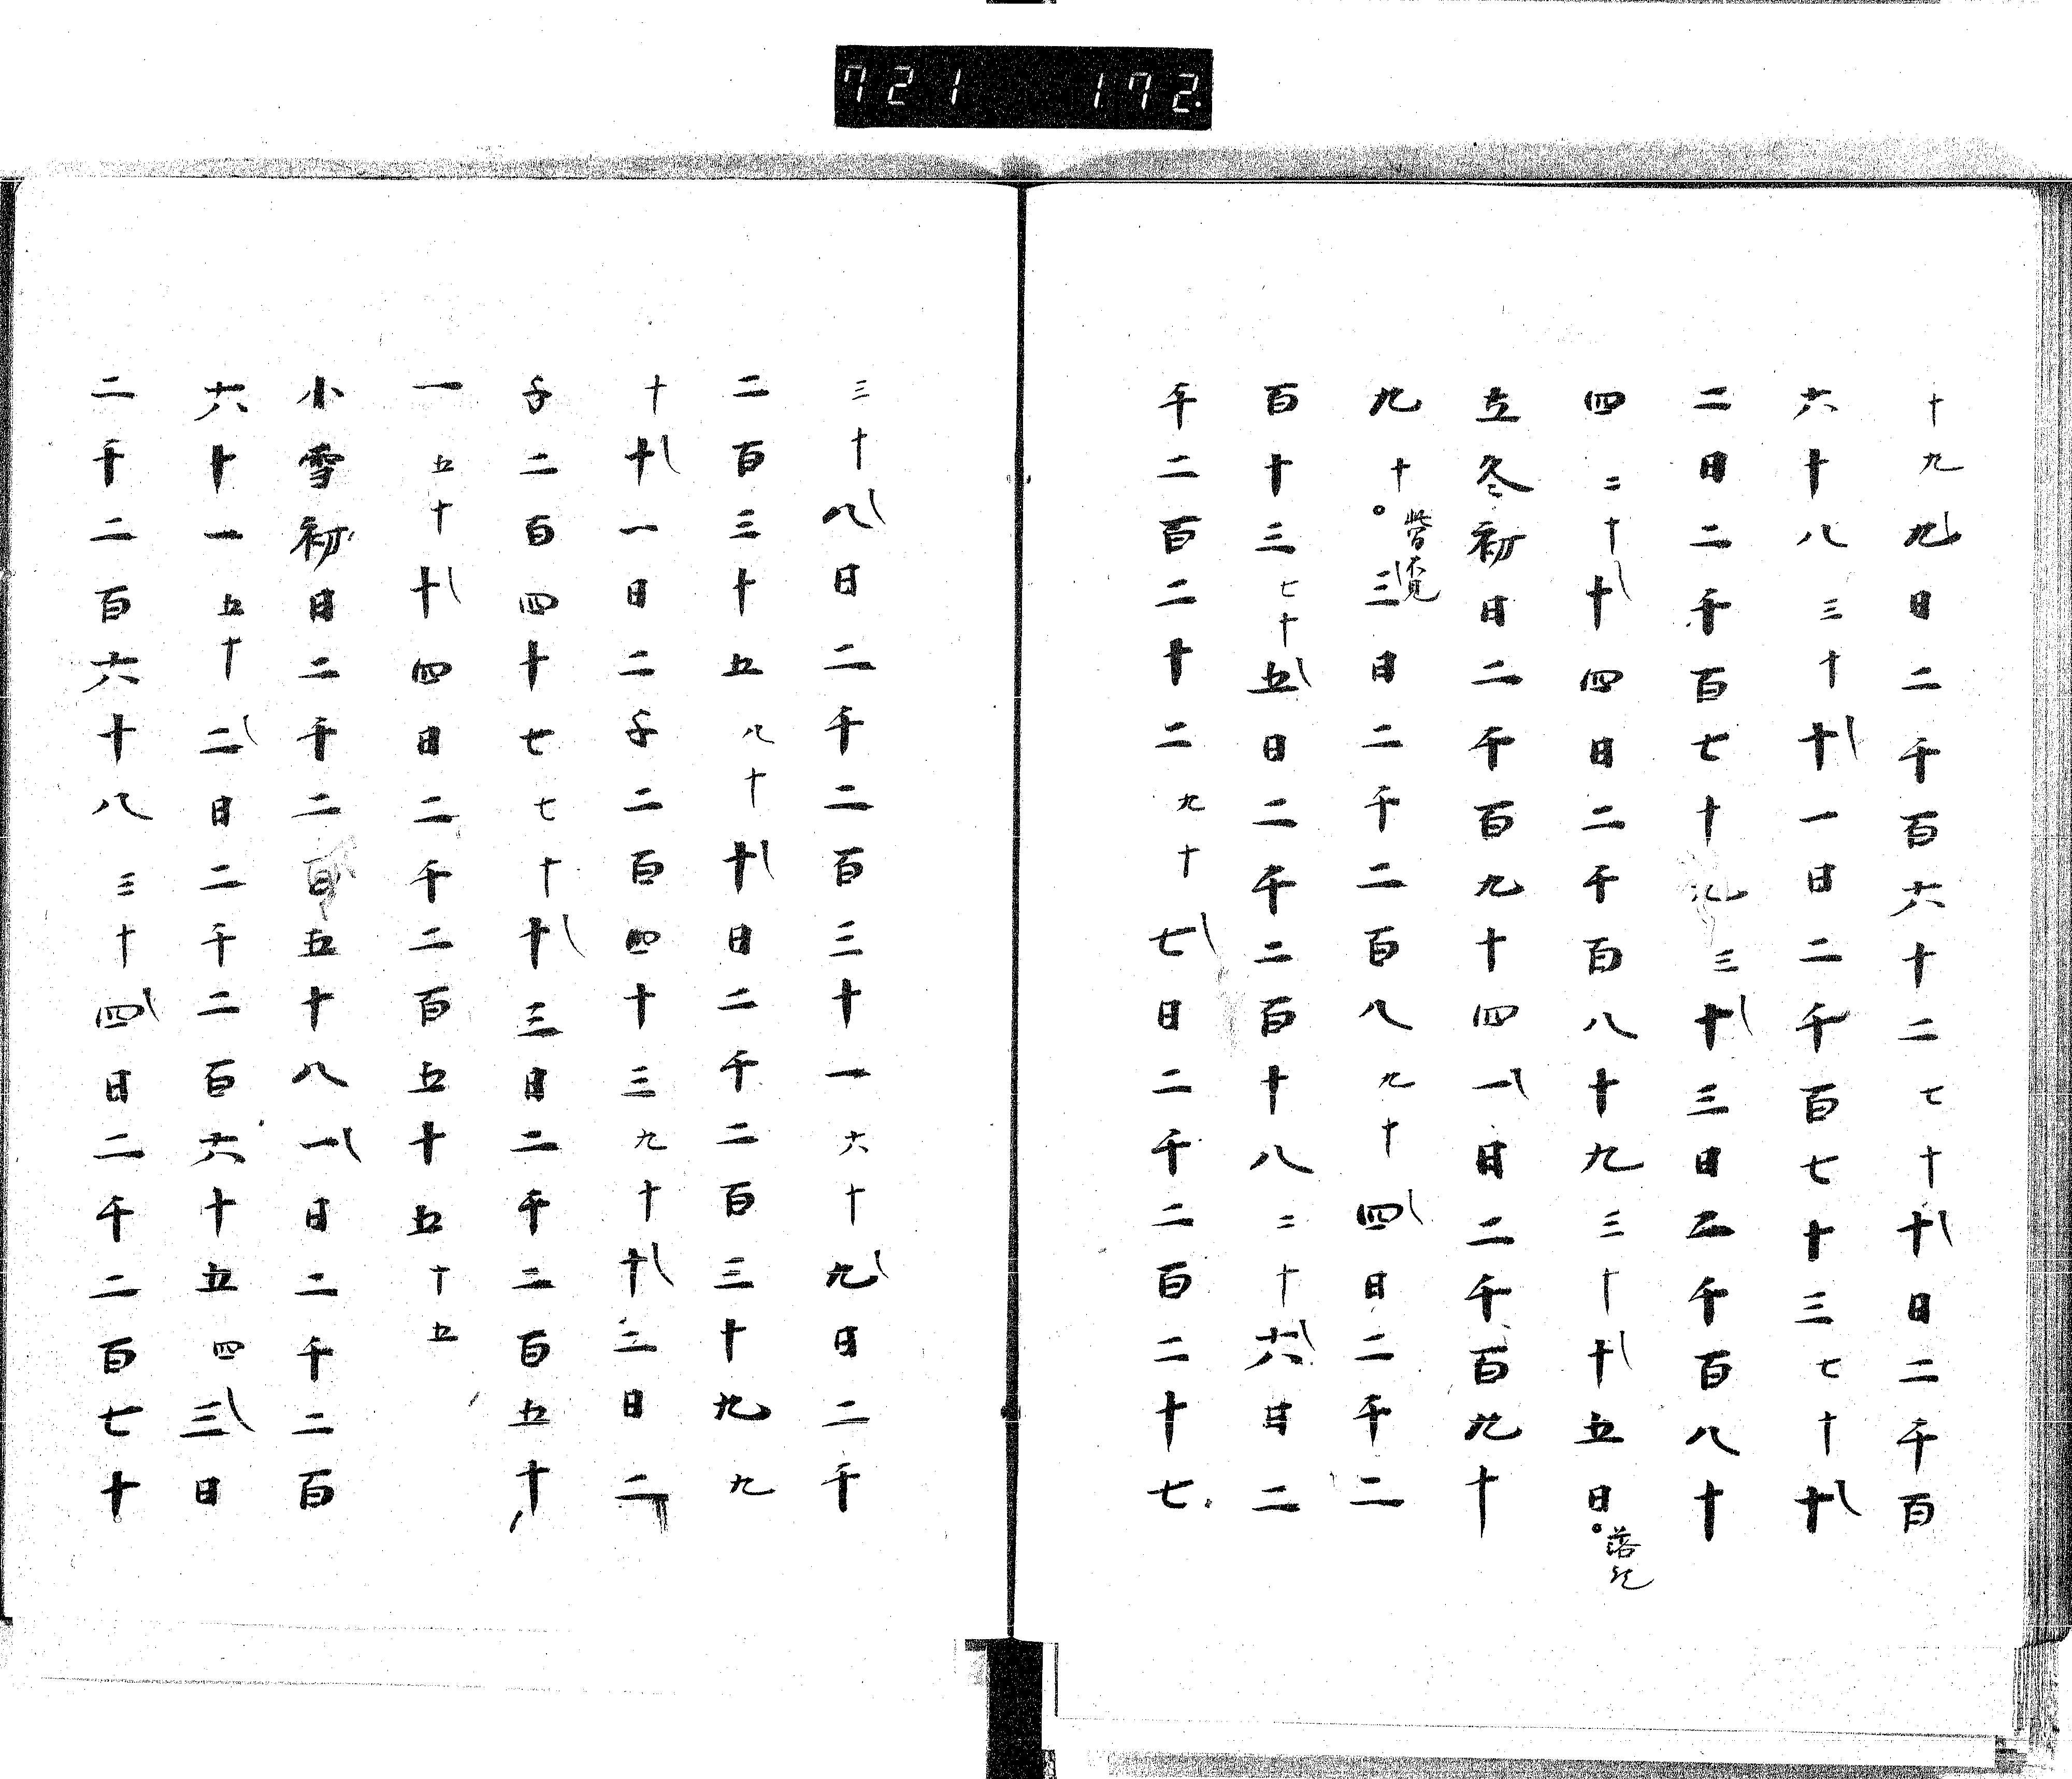 721 172.
十九九日二千百六十二七十十日二千百
六十八三十十一日二千百七十三七十十
二日二千百七十八三十三日二千百八十
四二十十四日二千百八十九三十十五日。落欤
立冬初日二千百九十四一日二千百九十
九十。三日二千二百八九十四日二千二
百十三七十五日二千二百十八二十六日二
千二百二十二九十七日二千二百二十七
三十八日二千二百三十一六十九日二千
二百三十五八十十日二千二百三十九九
十十一日二千二百四十三九十十二日二
千二百四十七七十十三日二千二百五十
一五十十四日二千二百五十五十五
小雪初日二千二百五十八一日二千二百
六十一五十二日二千二百六十五四三日
二千二百六十八三十四日二千二百七十